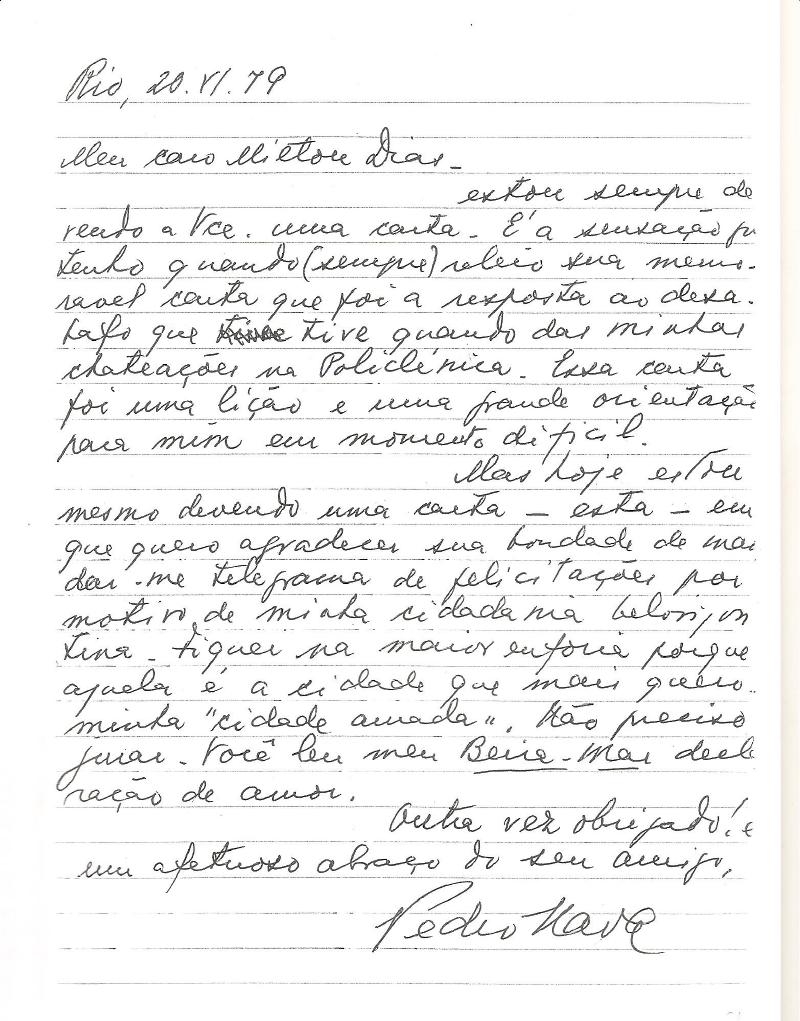 Rio, 20.VI.79
Meu caro Milton Dias -
estou sempre de
vendo a Vce. uma carta. É a sensação qu
tenho quando (sempre) releio sua memo-
ravel carta que foi a resposta ao desa-
bafo que tive quando das minhas
chateações na Policlínica. Essa carta
foi uma lição e uma grande orientação
para mim em momento dificil.
Mas hoje estou
mesmo devendo uma carta - esta - em
que quero agradecer sua bondade de man
dar-me telegrama de felicitações por
motivo de minha cidadania belorizon
tina. Fiquei na maior euforia porque
aquela é a cidade que mais quero.
minha "cidade amada". Não preciso
jurar. Você leu meu Beira-Mar decla
ração de amor.
Outra vez obrigado! e
um afetuoso abraço do seu amigo,
Pedro Nava